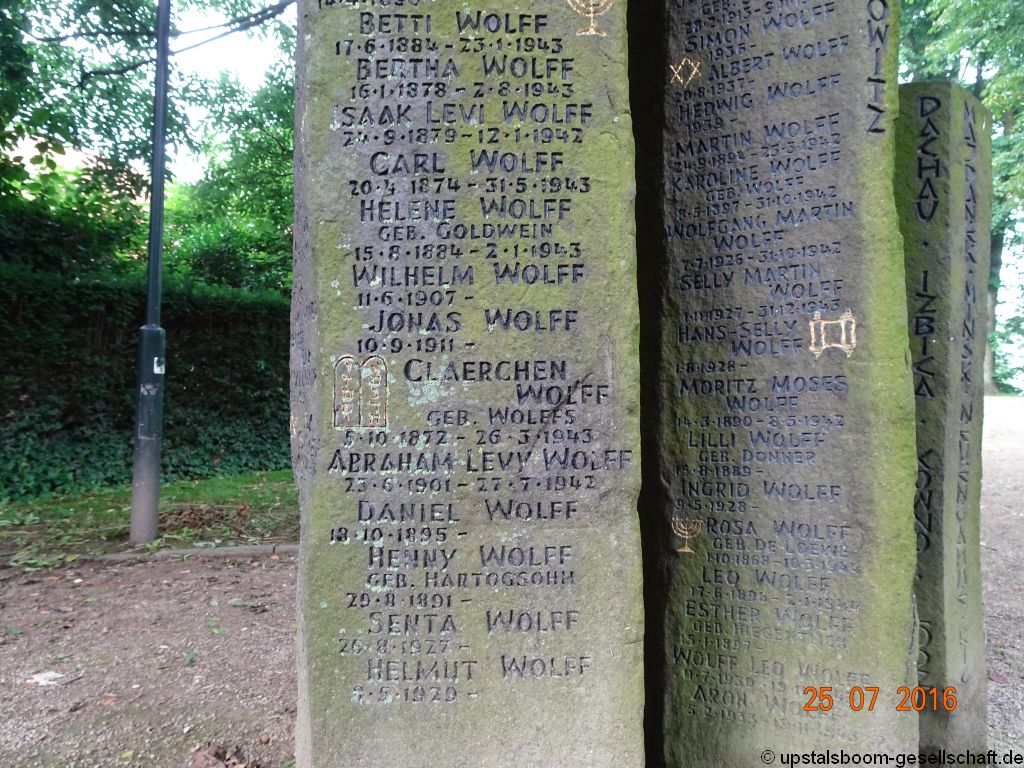 BETTI WOLFF
17·6·1884 - 23·1·1943
BERTHA WOLFF
16·1·1878 - 2·8·1943
ISAAK LEVI WOLFF
24·9·1879 - 12·1·1942
CARL WOLFF
20·4·1874 - 31·5·1943
HELENE WOLFF
GEB. GOLDWEIN
15·8·1884 - 2·1·1943
WILHELM WOLFF
11·6·1907 -
JONAS WOLFF
10·9·1911 -
CLAERCHEN
WOLFF
GEB. WOLFFS
5·10·1872 - 26·3·1943
ABRAHAM LEVY WOLFF
23·6·1901 - 27·7·1942
DANIEL WOLFF
18·10·1895 -
HENNY WOLFF
GEB. HARTOGSOHN
29·8·1891 -
SENTA WOLFF
26·8·1927 -
HELMUT WOLFF
5·5·1929 -
SIMON WOLFF
1935 -
ALBERT WOLFF
20·8·1937 -
HEDWIG WOLFF
1939 -
MARTIN WOLFF
24·9·1894 - 25·3·1942
KAROLINE WOLFF
GEB. WOLFF
18·5·1897 - 31·10·1942
WOLFGANG MARTIN
WOLFF
7·7·1926 - 31·10·1942
SELLY MARTIN
WOLFF
1·11·1927 - 31·12·1943
HANS-SELLY
WOLFF
1·8·1928 -
MORITZ MOSES
WOLFF
14·3·1890 - 8·5·1942
LILLI WOLFF
GEB. DONNER
15·8·1889 -
INGRID WOLFF
9·5·1928 -
ROSA WOLFF
GEB. DE LOEWE
·10·1868 - 10·3·1943
LEO WOLFF
17·6·1896 - 2·1·1942
ESTHER WOLFF
GEB.
15·1·1897 -
WOLFF LEO WOLFF
ARON WOLFF
OWITZ
DACHAU · IZBICA ·
MAJDANEK · MINSK ·
25 07 2016
© upstalsboom-gesellschaft.de